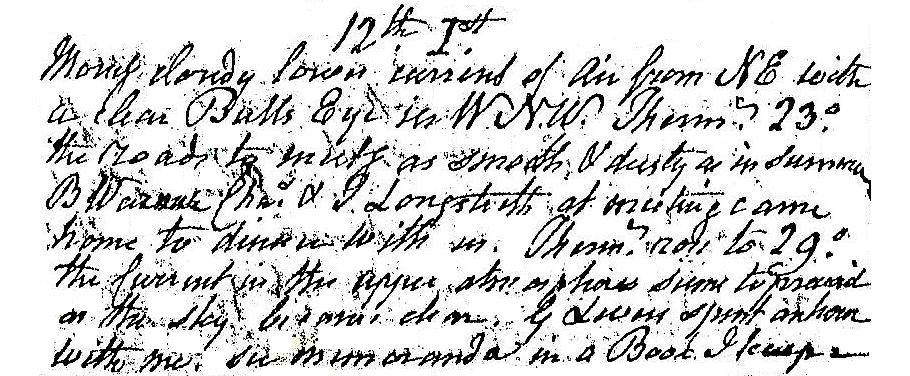 12th 1st
Morng cloudy lower current of air from NE with
a clear Bulls Eye in W.N.W. Thermr. 23°
the roads to meetg. as smooth & dusty as in summer
B Warner Chas. & I Longstreth at meeting came
home to dinner with us. Thermr. rose to 29°
the current in the upper atmosphere seems to prevail
as the sky became clear. G Lewis spent an hour
with me. see memoranda in a Book I keep